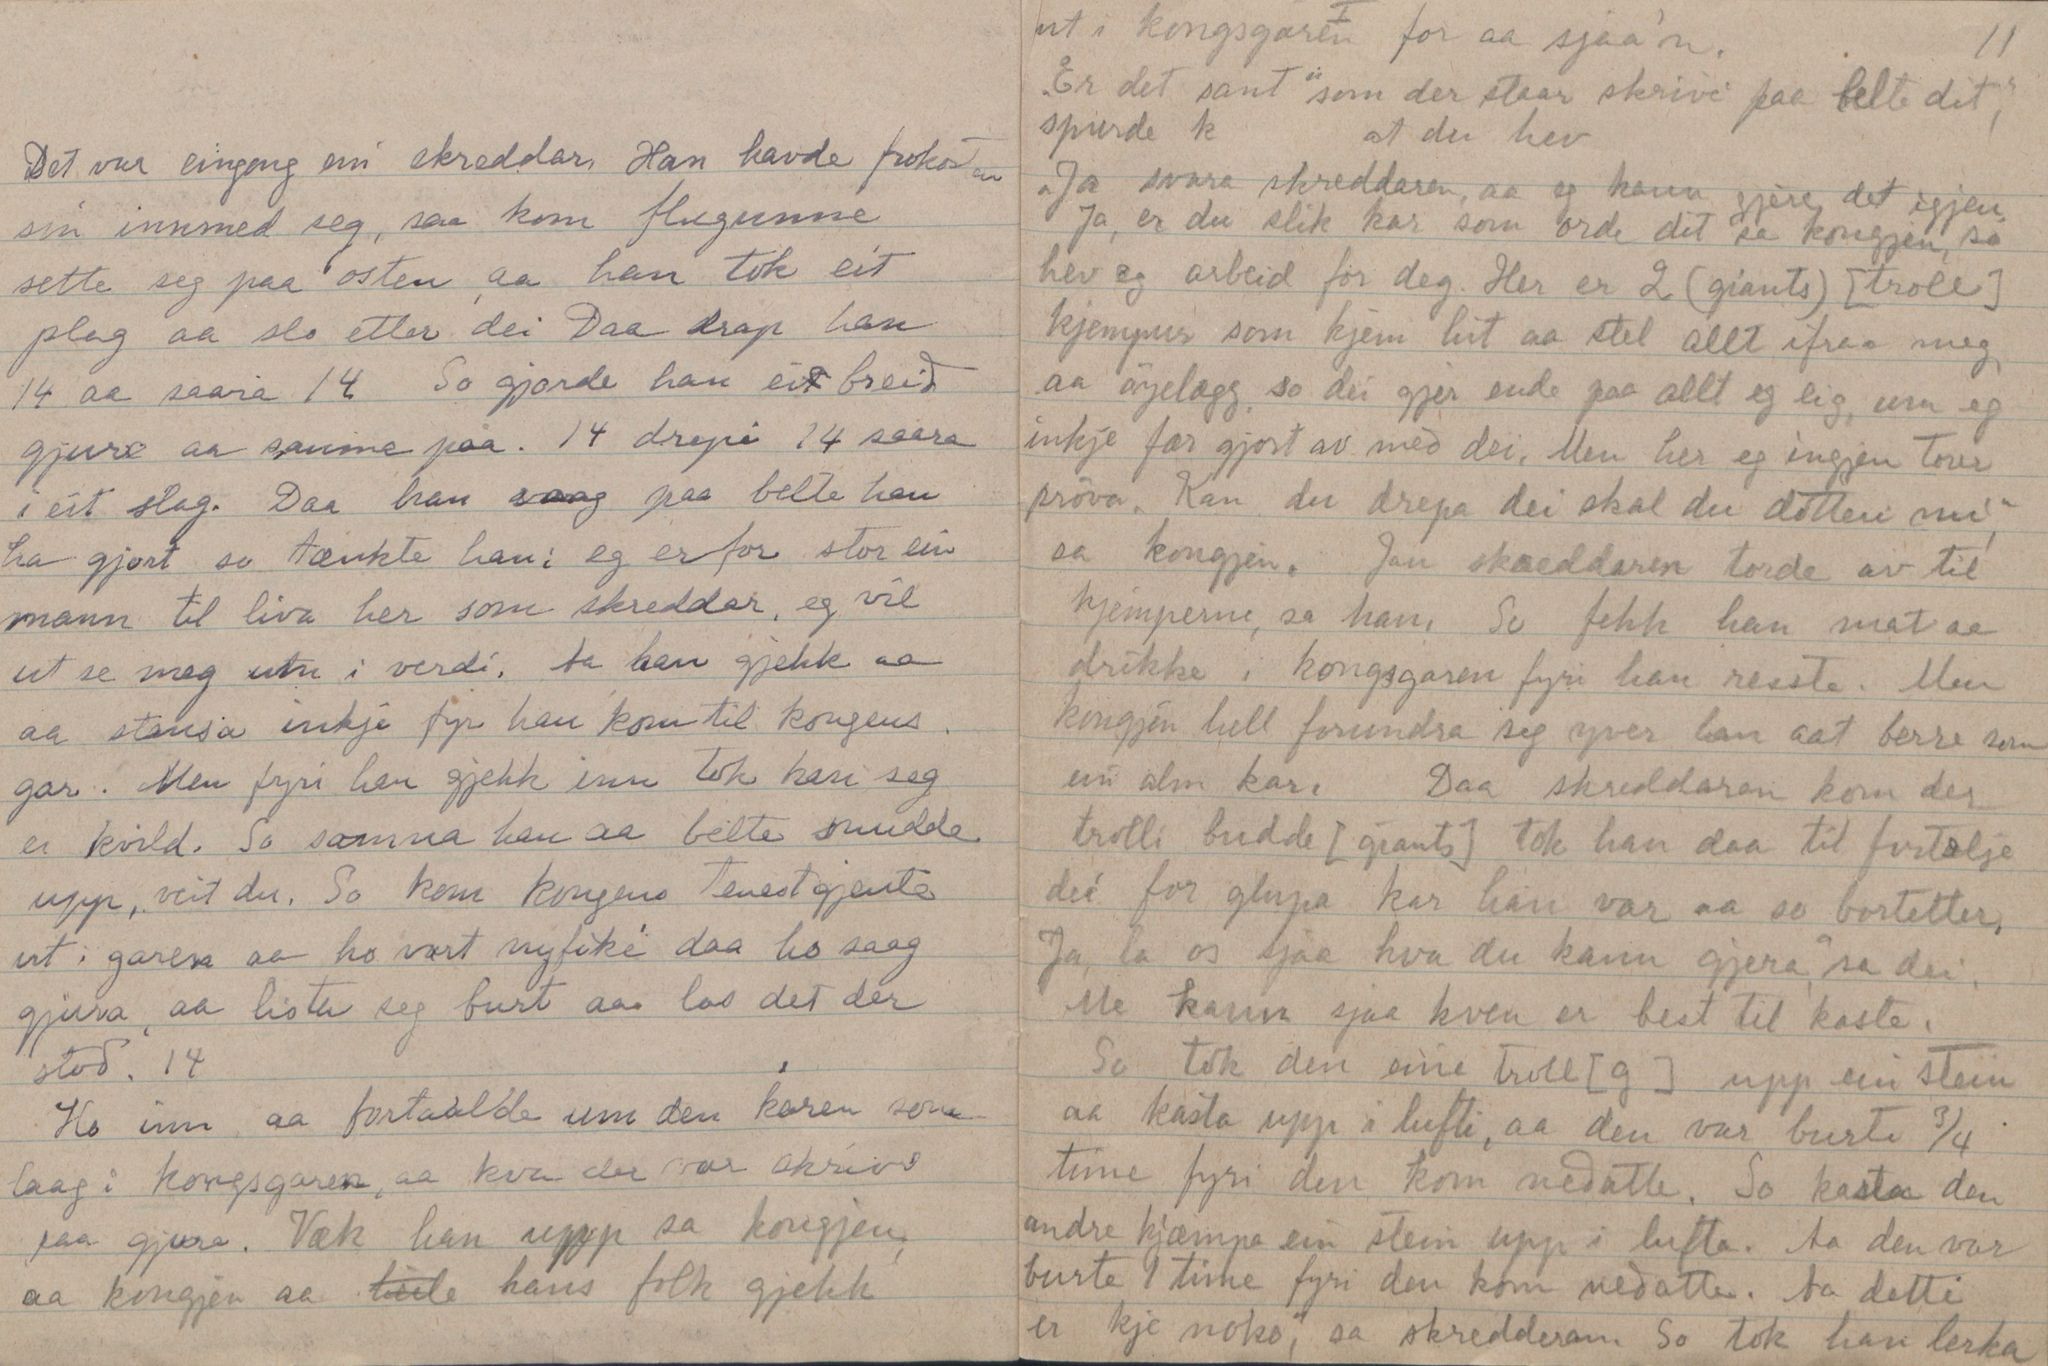 Det var eingong ein skreddar. Han havde frokosten
sin innmed seg, saa kom flugunne
sette seg paa osten, aa han tok eit
plag aa slo etter dei Daa drap han
14 aa saara 14 So gjorde han eit breid
gjure aa sauma paa. 14 drepi 14 saara
i eit slag. Daa han saag paa belte han
ha gjort so tænkte han: eg er for stor ein
mann til liva her som skreddar, eg vil
ut se meg um i verdi. Aa han gjekk aa
aa stansa inkje fyr han kom til kongens
gar. Men fyri han gjekk inn tok han seg
ei kvild. So somna han aa belte snudde
upp, veit du. So kom kongens tenestgjente
ut i garen aa ho vart nyfiké daa ho saag
gjura, aa lista seg burt aa las det der
stod. 14
Ho inn aa fortaalde um den karen som
laag i kongsgaren, aa kva der var skrive
paa gjura. Væk han upp sa kongjen,
aa kongjen aa hans folk gjekk
ut i kongsgaren for aa sjaa'n. 11
"Er det sant" som der staar skrivi paa belte dit,"
spurde k at du hev
"Ja svara skreddaren, aa eg kann gjere det igjen.
Ja, er du slik kar som orde dit sa kongjen, so
hev eg arbeid for deg. Her er 2 (giants) [troll]
kjempur som kjem hit aa stel allt ifraa meg
aa öyelægg, so dei gjer ende paa allt eg eig, um eg
inkje fær gjort av med dei. Men her eg ingjen torer
pröva. Kan du drepa dei skal du dotteri mi,"
sa kongjen. Jau skræddaren torde av til
kjemperne, sa han. So fekk han mat aa
drikke i kongsgaren fyri han reiste. Men
kongjen hell forundra seg yver han aat berre som
ein alm kar. Daa skreddaren kom der
trolli budde [giants] tok han daa til fortælje
dei for glupa kar han var aa so bortetter.
Ja, la os sjaa hva du kann gjera," sa dei.
Me kann sjaa kven er best til kaste.
So tok den eine troll [g] upp ein stein
aa kasta upp i lufti, aa den var burte 3/4
time fyri den kom nedatte. So kasta den
andre kjæmpa ein stein upp i lufta. Aa den var
burte 1 time fyri den kom nedatte. Aa detti
er kje noko," sa skredderan. So tok han lerka